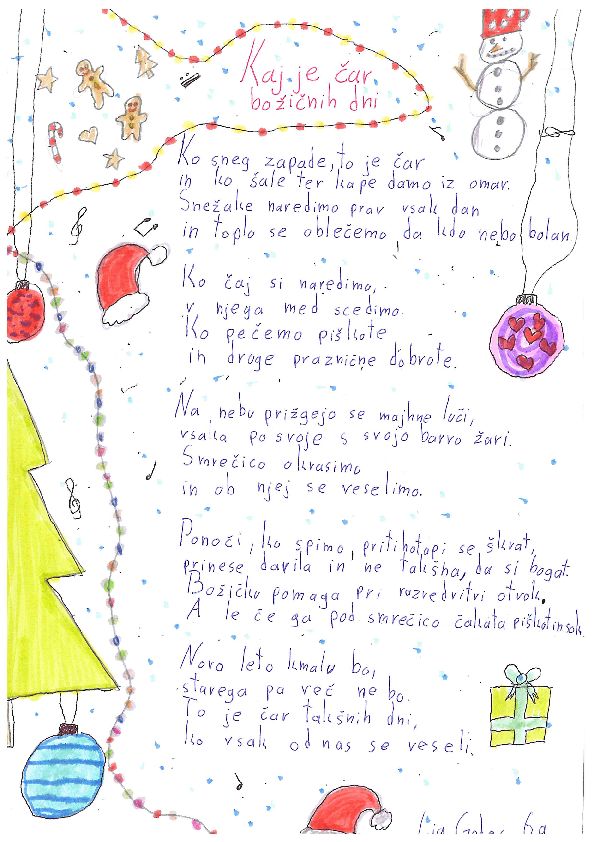 Kaj je čar
božičnih dni
Ko sneg zapade, to je čar
in ko šale ter kape damo iz omar.
Snežake naredimo prav vsak dan
in toplo se oblečemo da kdo nebo bolan
Ko čaj si naredimo,
v njega med scedimo.
Ko pečemo piškote
in druge praznične dobrote.
Na nebu prižgejo se majhne luči,
vsaka po svoje s svojo barvo žari.
Smrečico okrasimo
in ob njej se veselimo.
Ponoči, ko spimo, pritihotapi se škrat,
prinese darila in ne takšna, da si bogat.
Božičku pomaga pri razvedritvi otrok.
A le če ga pod smrečico čakata piškot in sok.
Novo leto kmalu bo,
starega pa več ne bo.
To je čar takšnih dni,
ko vsak od nas se veseli.